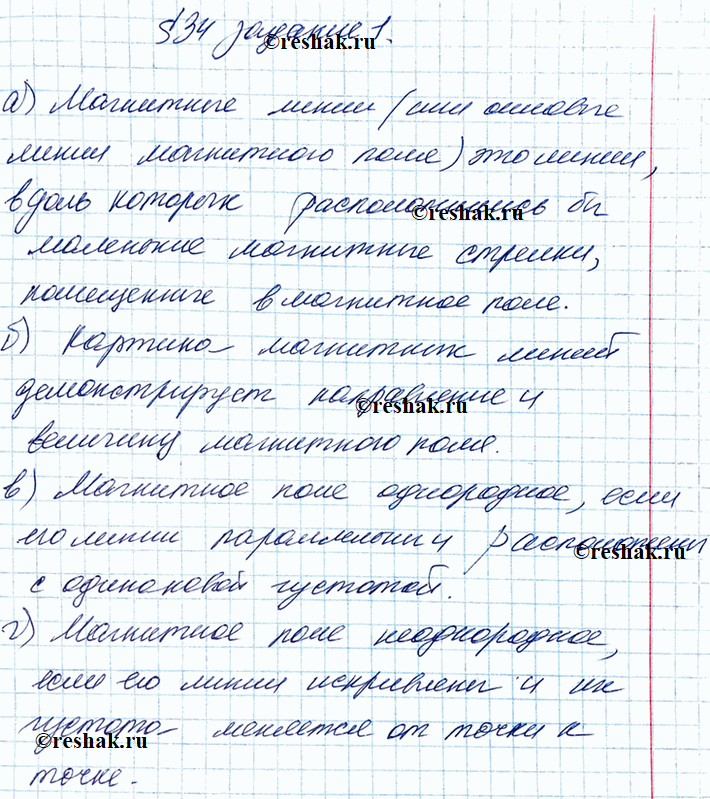 §34 задание 1.
а) Магнитные линии (или силовые
линии магнитного поля) это линии,
вдоль которых расположились бы
маленькие магнитные стрелки,
помещенные в магнитное поле.
б) Картина магнитных линий
демонстрирует направление и
величину магнитного поля.
в) Магнитное поле однородное, если
его линии параллельны и расположены
с одинаковой густотой.
г) Магнитное поле неоднородное,
если его линии искривлены и их
густота меняется от точки к
точке.
©reshak.ru
©reshak.ru
©reshak.ru
©reshak.ru
©reshak.ru